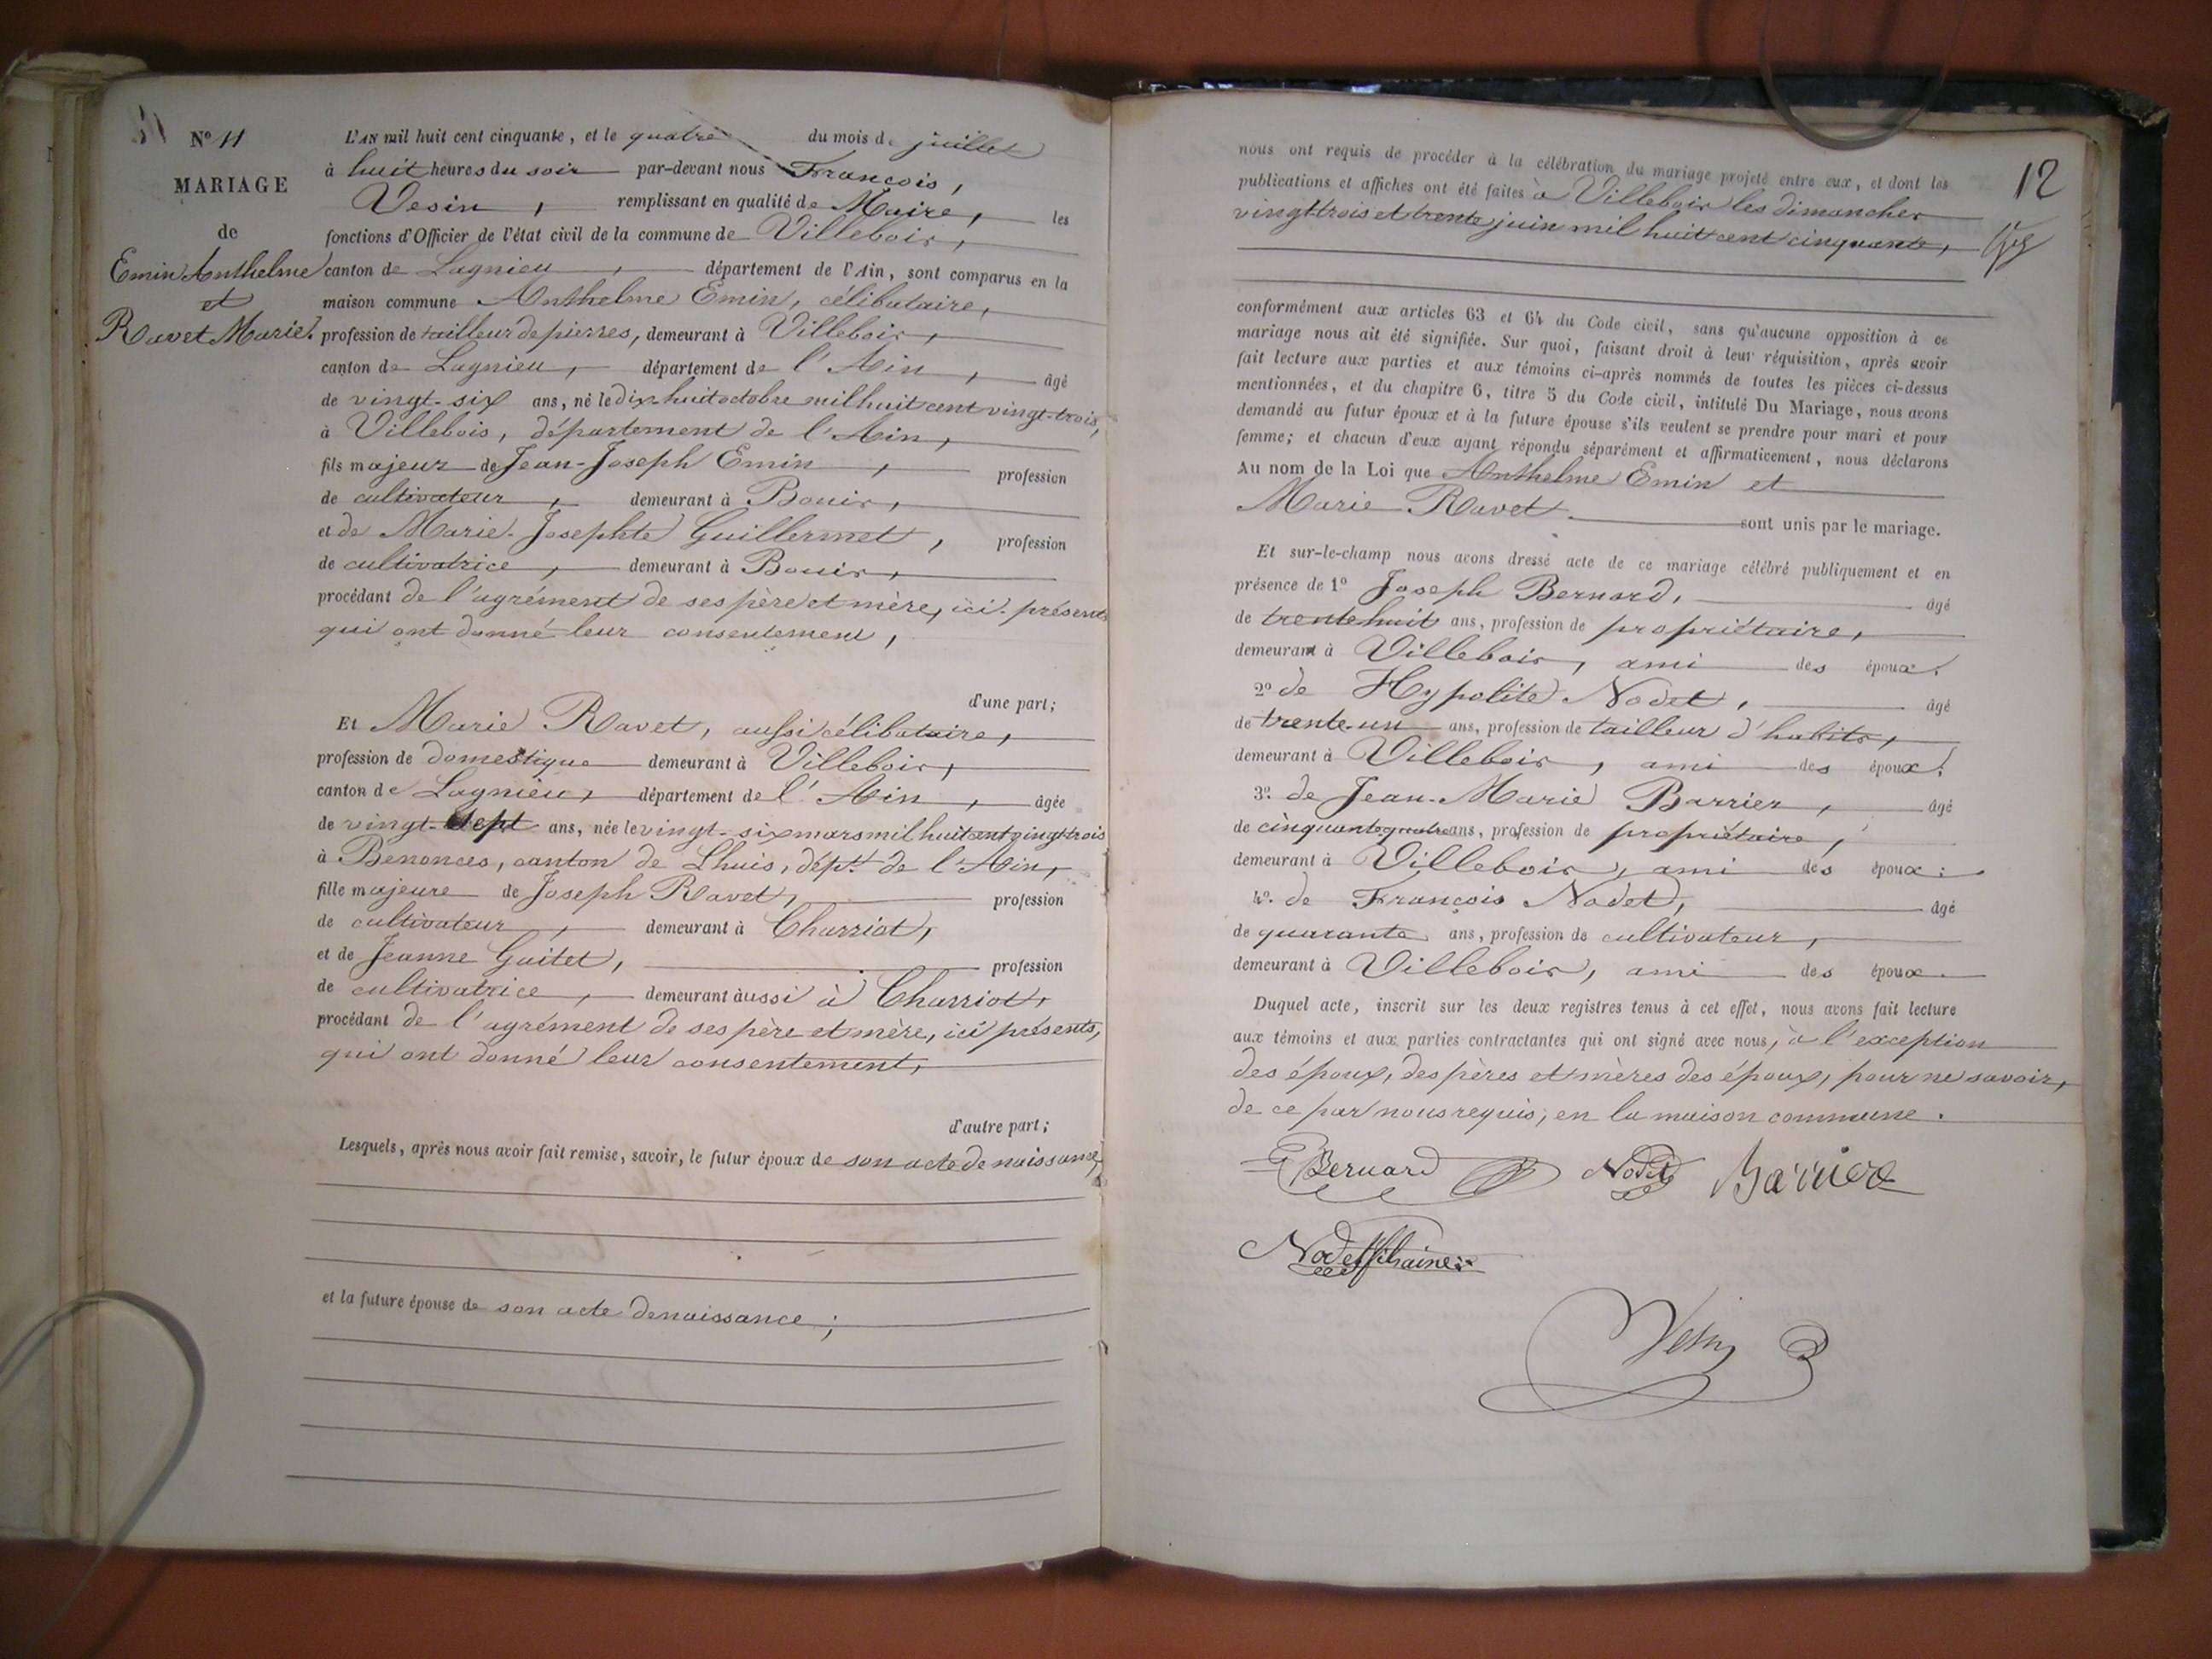 N° 11
MARIAGE
de
Emin Anthelme
et
Ravet Marie.
L'AN mil huit cent cinquante, et le quatre du mois de juillet
à huit heures du soir par-devant nous François,
Vesin, remplissant en qualité de Maire, les
fonctions d'Officier de l'état civil de la commune de Villebois,
canton de Lagnieu, département de l'Ain, sont comparus en la
maison commune Anthelme Emin, célibataire,
profession de tailleur de pierres, demeurant à Villebois,
canton de Lagnieu, département de l'Ain, âgé
de vingt-six ans, né le dix-huit octobre mil huit cent vingt-trois,
à Villebois, département de l'Ain,
fils majeur de Jean-Joseph Emin, profession
de cultivateur, demeurant à Bouis,
et de Marie-Josephte Guillermet, profession
de cultivatrice, demeurant à Bouis,
procédant de l'agrément de ses père et mère, ici présents
qui ont donné leur consentement,
d'une part;
Et Marie Ravet, aussi célibataire,
profession de domestique demeurant à Villebois,
canton de Lagnieu, département de l'Ain, âgée
de vingt-sept ans, née le vingt-six mars mil huit cent vingt-trois
à Benonces, canton de Lhuis, dépt. de l'Ain,
fille majeure de Joseph Ravet, profession
de cultivateur, demeurant à Charriot,
et de Jeanne Guitet, profession
de cultivatrice, demeurant aussi à Charriot,
procédant de l'agrément de ses père et mère, ici présents,
qui ont donné leur consentement,
d'autre part;
Lesquels, après nous avoir fait remise, savoir, le futur époux de son acte de naissance,
et la future épouse de son acte de naissance;
12
nous ont requis de procéder à la célébration du mariage projeté entre eux, et dont les
publications et affiches ont été faites à Villebois les dimanches
vingt-trois et trente juin mil huit cent cinquante,
conformément aux articles 63 et 64 du Code civil, sans qu'aucune opposition à ce
mariage nous ait été signifiée. Sur quoi, faisant droit à leur réquisition, après avoir
fait lecture aux parties et aux témoins ci-après nommés de toutes les pièces ci-dessus
mentionnées, et du chapitre 6, titre 5 du Code civil, intitulé Du Mariage, nous avons
demandé au futur époux et à la future épouse s'ils veulent se prendre pour mari et pour
femme; et chacun d'eux ayant répondu séparément et affirmativement, nous déclarons
Au nom de la Loi que Anthelme Emin et
Marie Ravet sont unis par le mariage.
Et sur-le-champ nous avons dressé acte de ce mariage célébré publiquement et en
présence de 1° Joseph Bernard, âgé
de trente huit ans, profession de propriétaire,
demeurant à Villebois, ami des époux.
2° de Hypolite Nodet, âgé
de trente-un ans, profession de tailleur d'habits,
demeurant à Villebois, ami des époux.
3° de Jean-Marie Barrier, âgé
de cinquante quatre ans, profession de propriétaire,
demeurant à Villebois, ami des époux:
4° de François Nodet, âgé
de quarante ans, profession de cultivateur,
demeurant à Villebois, ami des époux.
Duquel acte, inscrit sur les deux registres tenus à cet effet, nous avons fait lecture
aux témoins et aux parties contractantes qui ont signé avec nous, à l'exception
des époux, des pères et mères des époux, pour ne savoir,
de ce par nous requis, en la maison commune.
Bernard Nodet Barrier
Nodet fils aine
Vesin